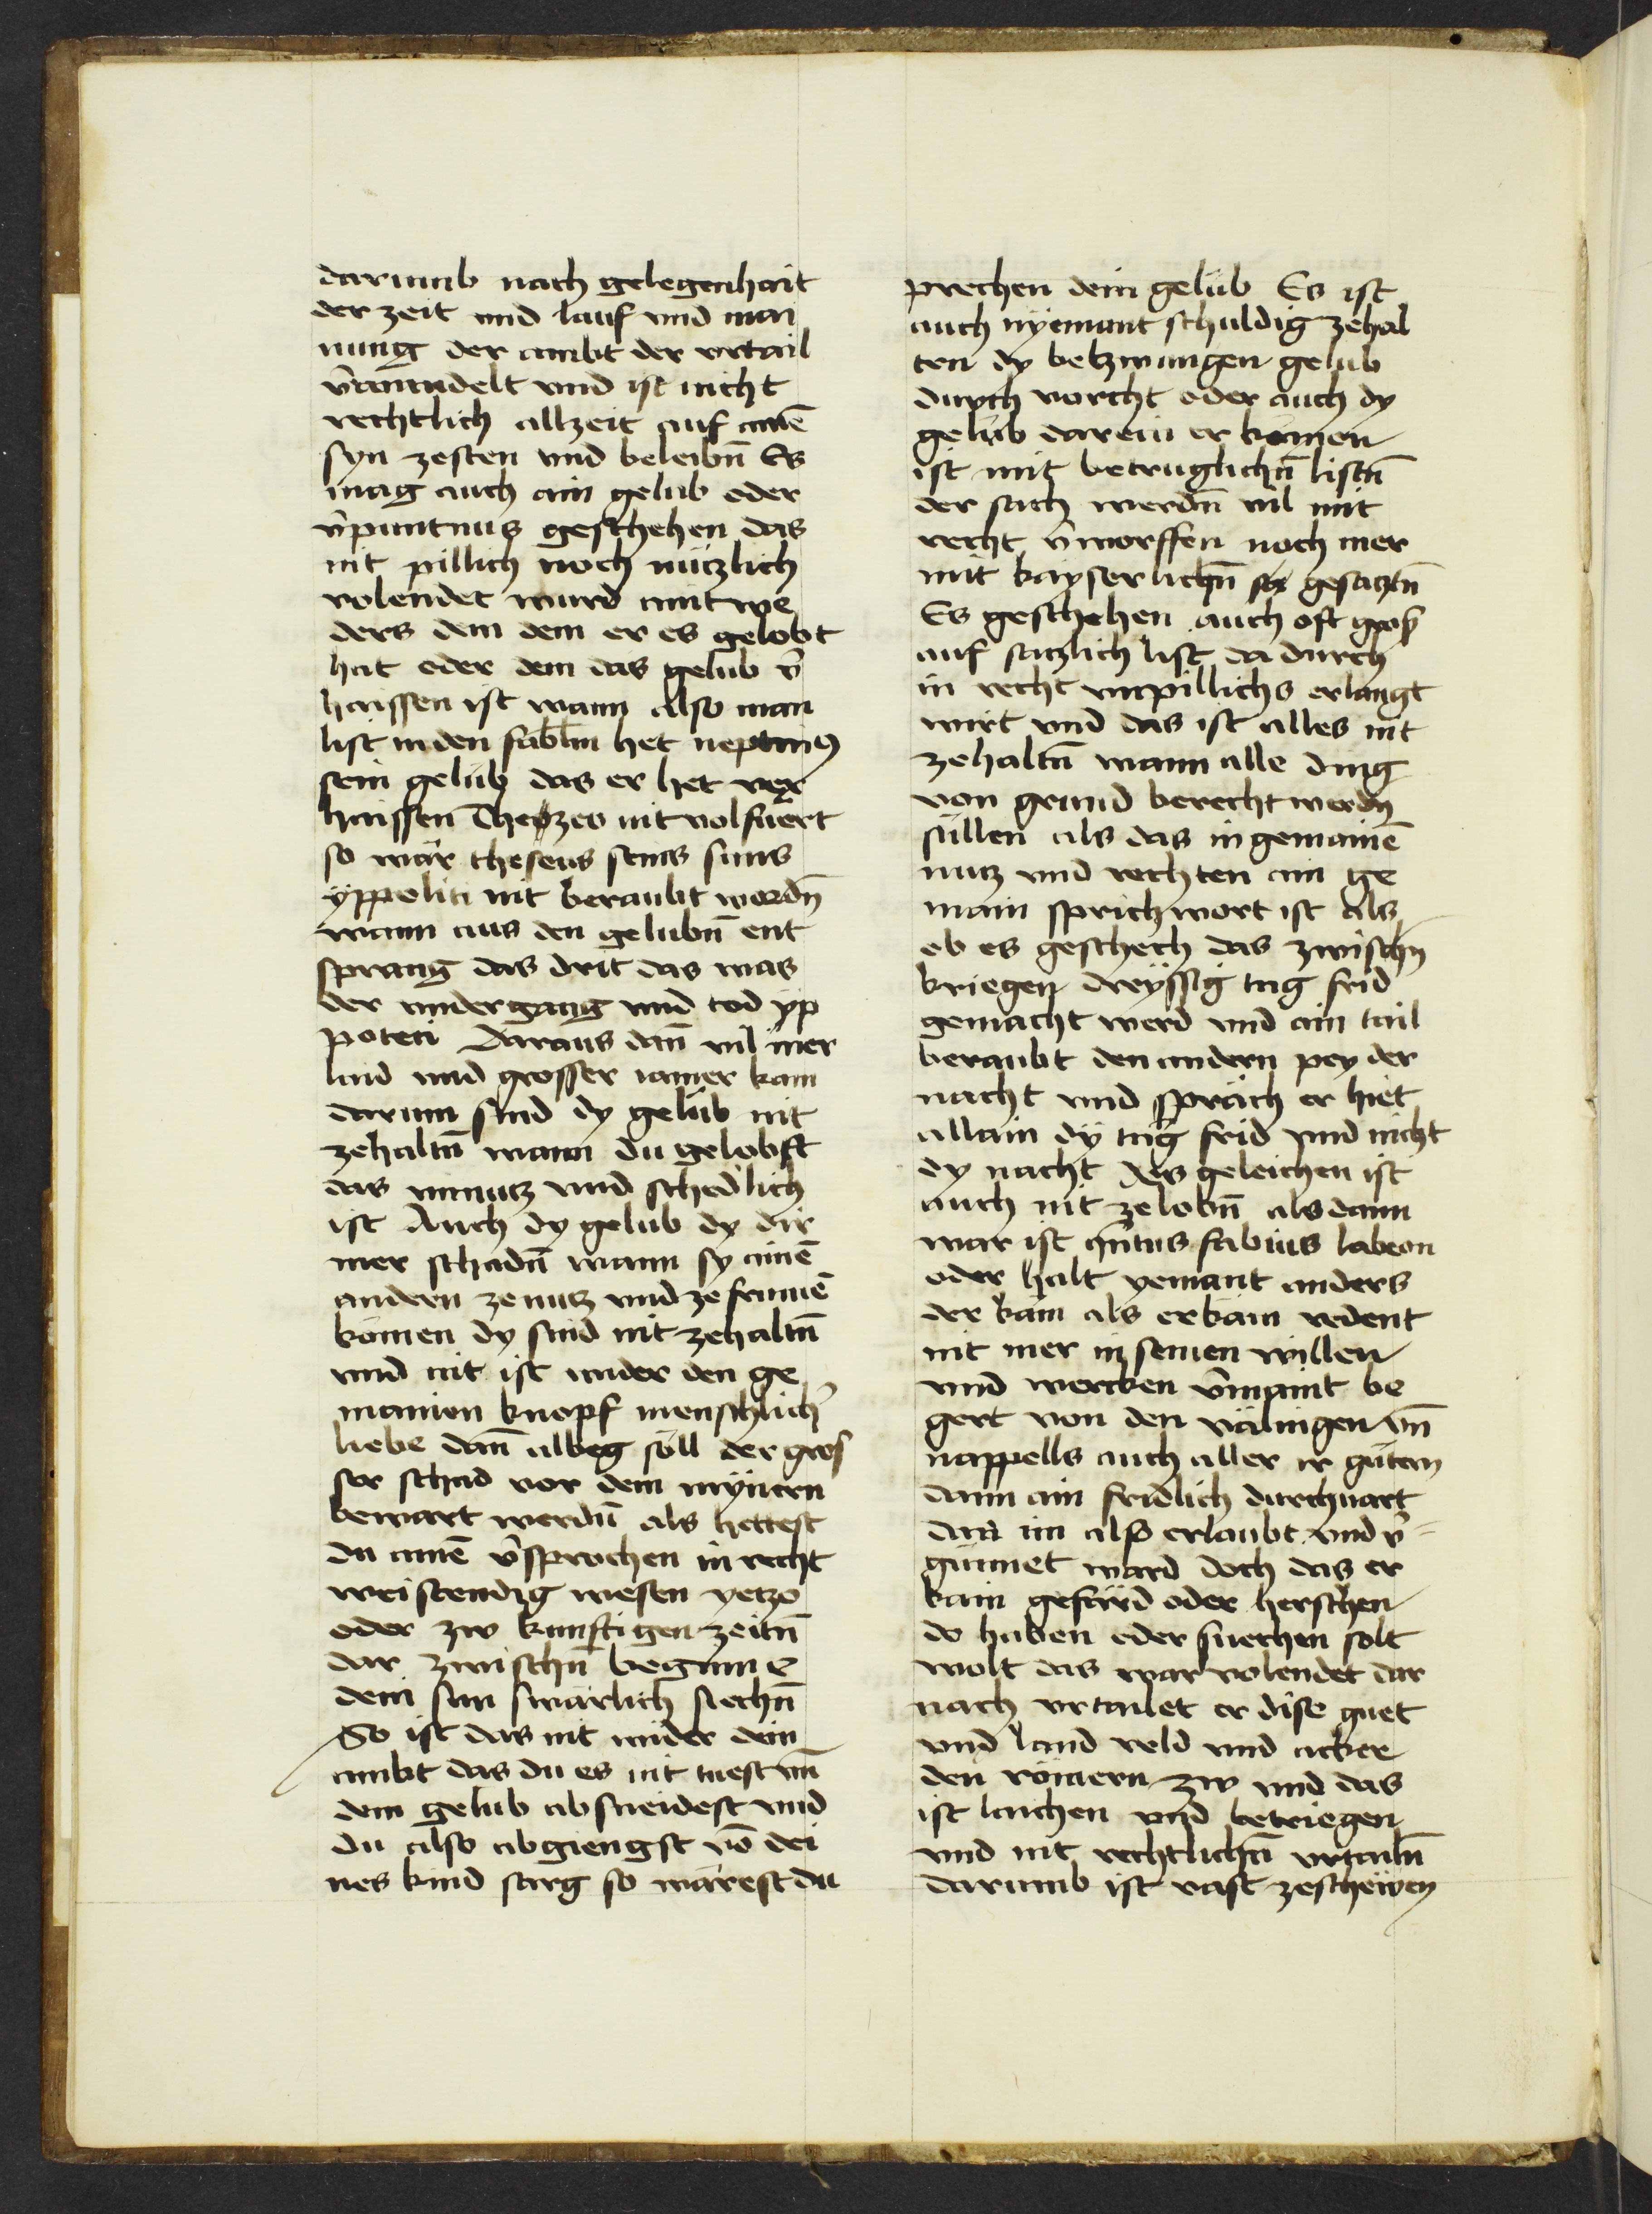 darumb nach gelegenhait
der zeit vnd lauf vnd mai
nung der ambt der vrtail
v̄wanndelt vnd ist nicht
rechtlich allzeit auf ainē
syn zesten vnd beleibn̄ Es
mag auch ain gelub oder
v̄puntnus geschehen das
nit pillich noch nützlich
volendet wurd aintwe
ders dem dem er es gelobt
hat oder dem das gelub v̄
haissen ist wann also man
list in den fabeln het neptun9
sein gelub das er het ver
haissen Thezeo nit volfuert
so wär theseus seins suns
yppoliti nit beraubt wordn̄
wann aus den gelubn̄ ent
sprang das drit das was
der vndergang vnd tod yp
poteti Daraus dan̄ vil mer
laid vnd grosser iamer kam
darum sind dy gelub nit
zehaltn̄ wann du gelobst
das vnnutz vnd schedlich
ist Auch dy gelub dy dir
mer schadn̄ wann sy ainē
andern ze nutz vnd ze frumē
komen dy sind nit zehaltn̄
vnd nit ist vnder den ge
mainen knopf menschlich̄
liebe dan̄ albeg söll der gros
ser schad vor dem mynern
bewart werdn̄ als hettest
du ainē v̄sprochen in recht
weistendig wesen yetzo
oder zw kunftigen zeitn̄
dar zwischn̄ begunn e
dein sun swärlich siechn̄
So ist das nit wider dein
ambt das du es nit tuest vn̄
dem gelub absneidest vnd
du also abgiengst vō dei
nes kind sarg so wärest du
prechen dein gelüb Es ist
auch nyemant schuldig zehal
ten dy betzwungen gelub
durch vorcht oder auch dy
gelüb darein er komen
ist mit betruglichn̄ listn̄
der sach werdn̄ vil mit
recht v̄worffen noch mer
mit kayserlichn̄ gesatztn̄
Es geschehen auch oft grob
auf satzlich list da durch
in recht vnpillichs erlangt
wirt vnd das ist alles nit
zehaltn̄ wann alle ding
von grund berecht werdn̄
süllen als das in gemainē
nutz vnd rechten ain ge
main sprichwort ist als
ob es geschech das zwischn̄
kriegen dreyssig tag frid
gemacht werd vnd ain tail
beraubt den andern pey der
nacht vnd spräch er hiet
allain dy täg frid vnd nicht
dy nacht Des geleichen ist
auch nit ze lobn̄ als dann
war ist qn̄tus fabius labeon
oder halt yemant anders
der kam als er kam redent
nit mer in seinen willen
vnd wercken v̄maint be
gert von den välingen vn̄
nappells auch aller ir gütern
dann ain fridlich durchuart
Das im also erlaubt vnd v̄
günnet ward doch das er
kain gefärd oder herschen
do haben oder suechen solt
wolt das war volendet dar
nach vrtailet er dise guet
vnd land veld vnd acker
den römern zw vnd das
ist laichen vnd betriegen
vnd nit rechtlichn̄ vrtailn̄
darumb ist vast zescheẅen